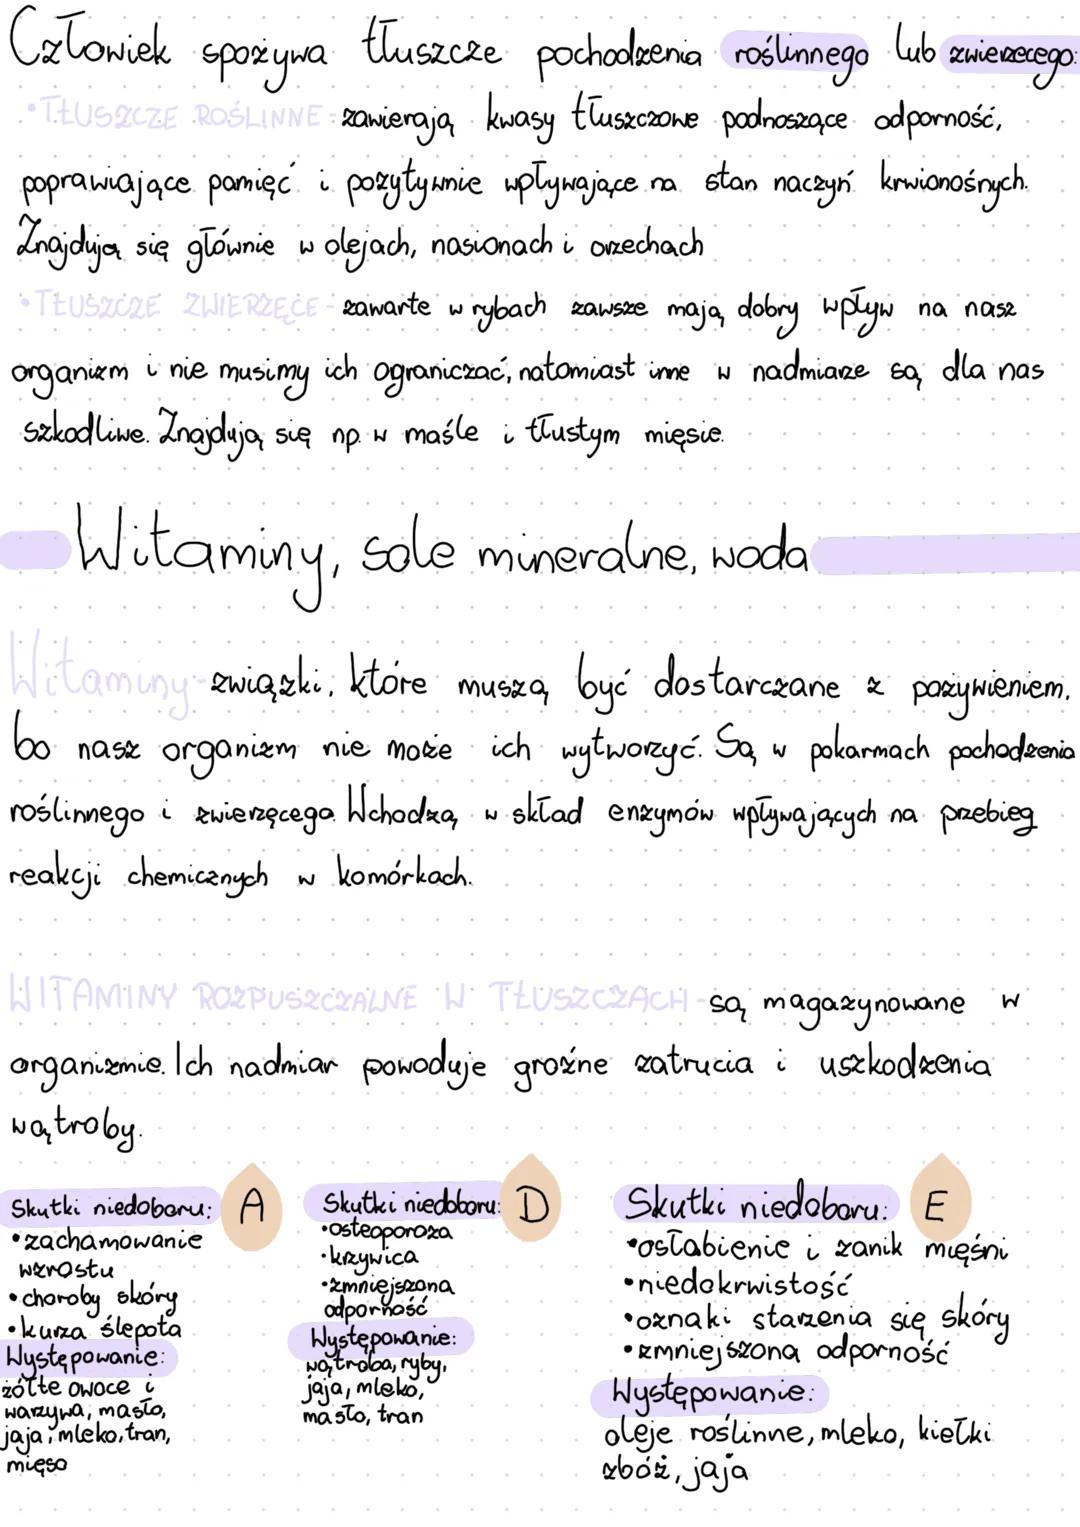 Człowiek spożywa tłuszcze pochodzenia roślinnego lub zwierzęcego:
•TŁUSZCZE ROŚLINNE-zawierają kwasy tłuszczowe podnoszące odporność,
poprawiające pamięć i pozytywnie wpływające na stan naczyń krwionośnych.
Znajdują się głównie w olejach, nasionach i orzechach
•TŁUSZCZE ZWIERZĘCE-zawarte w rybach zawsze mają dobry wpływ na nasz
organizm i nie musimy ich ograniczać, natomiast inne w nadmiarze są dla nas
szkodliwe. Znajdują się np. w maśle i tłustym mięsie.
Witaminy, sole mineralne, woda
Witaminy-związki, które muszą być dostarczane z pożywieniem,
bo nasz organizm nie może ich wytworzyć. Są w pokarmach pochodzenia
roślinnego i zwierzęcego. Wchodzą w skład enzymów wpływających na przebieg
reakcji chemicznych w komórkach.
WITAMINY ROZPUSZCZALNE W TŁUSZCZACH-są magazynowane w
organizmie. Ich nadmiar powoduje groźne zatrucia i uszkodzenia
wątroby.
Skutki niedoboru: A
•zachamowanie
wzrostu
•choroby skóry
•kurza ślepota
Występowanie:
żółte owoce i
warzywa, masło,
jaja, mleko, tran,
mięso
Skutki niedoboru: D
•osteoporoza
•krzywica
•zmniejszona
odporność
Występowanie:
wątroba, ryby,
jaja, mleko,
masło, tran
Skutki niedoboru: E
•osłabienie i zanik mięśni
•niedokrwistość
•oznaki starzenia się skóry
•zmniejszona odporność
Występowanie:
oleje roślinne, mleko, kiełki
zbóż, jaja